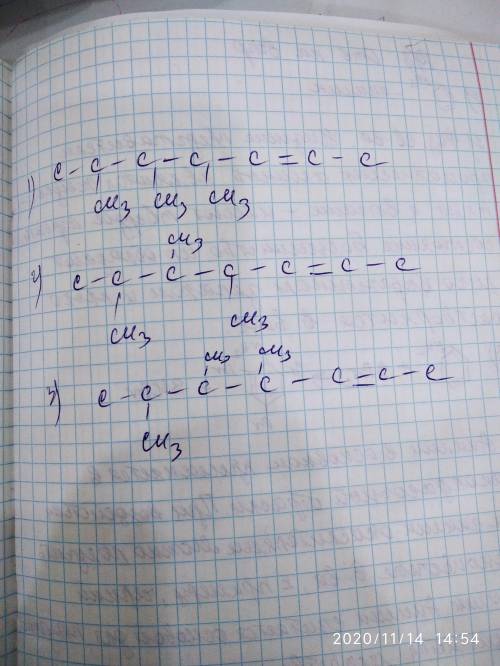 1) C - C - C - C - C = C - C
CH3 CH3 CH3
CH3
2) C - C - C - C - C = C - C
CH3 CH3
CH3 CH3
3) C - C - C - C - C = C - C
CH3
2020/11/14 14:54